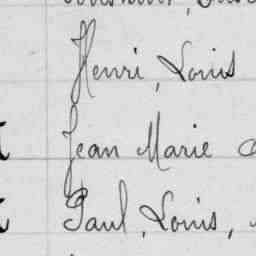 Henri, Louis
Jean Marie
Paul, Louis,